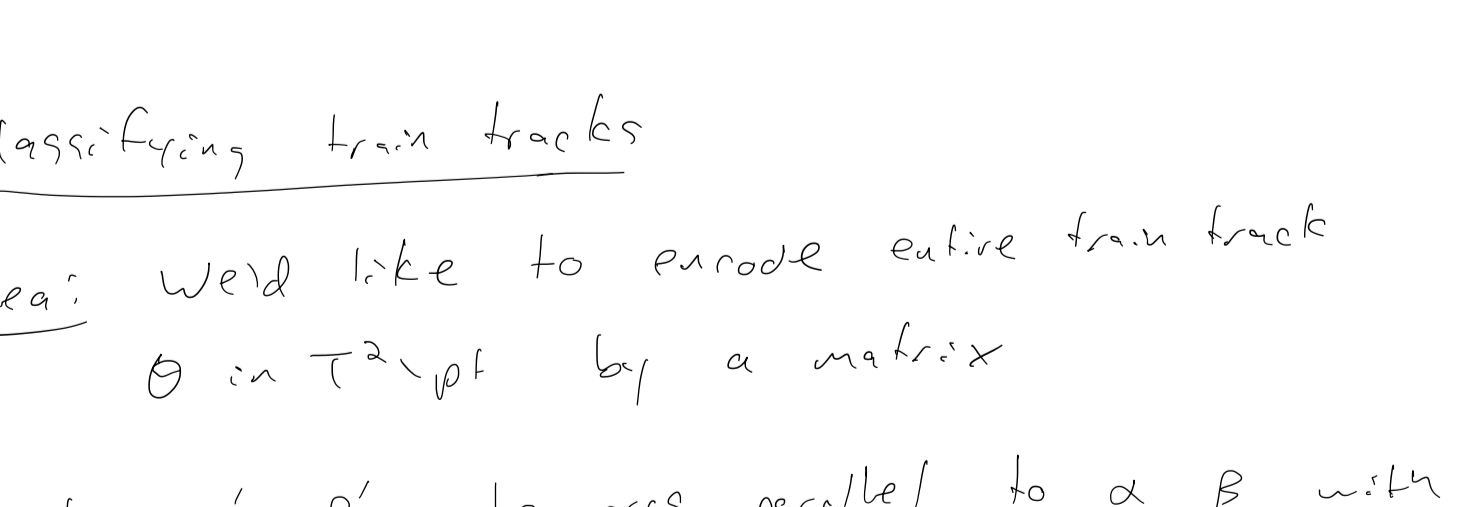 lassifying train tracks
ea: We'd like to encode entire train track
θ in T²\pt by a matrix
parallel to α β with